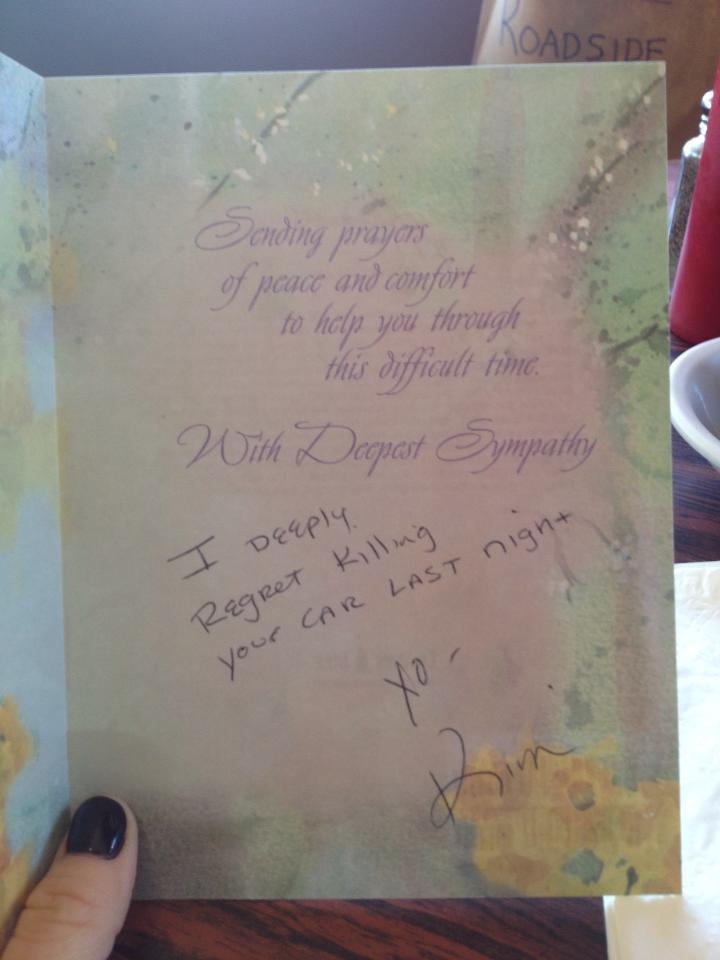 ROADSIDE
Sending prayers
of peace and comfort
to help you through
this difficult time.
With Deepest Sympathy
I DEEPLY
REgRET Killing
your CAR LAST night
XO -
Kim